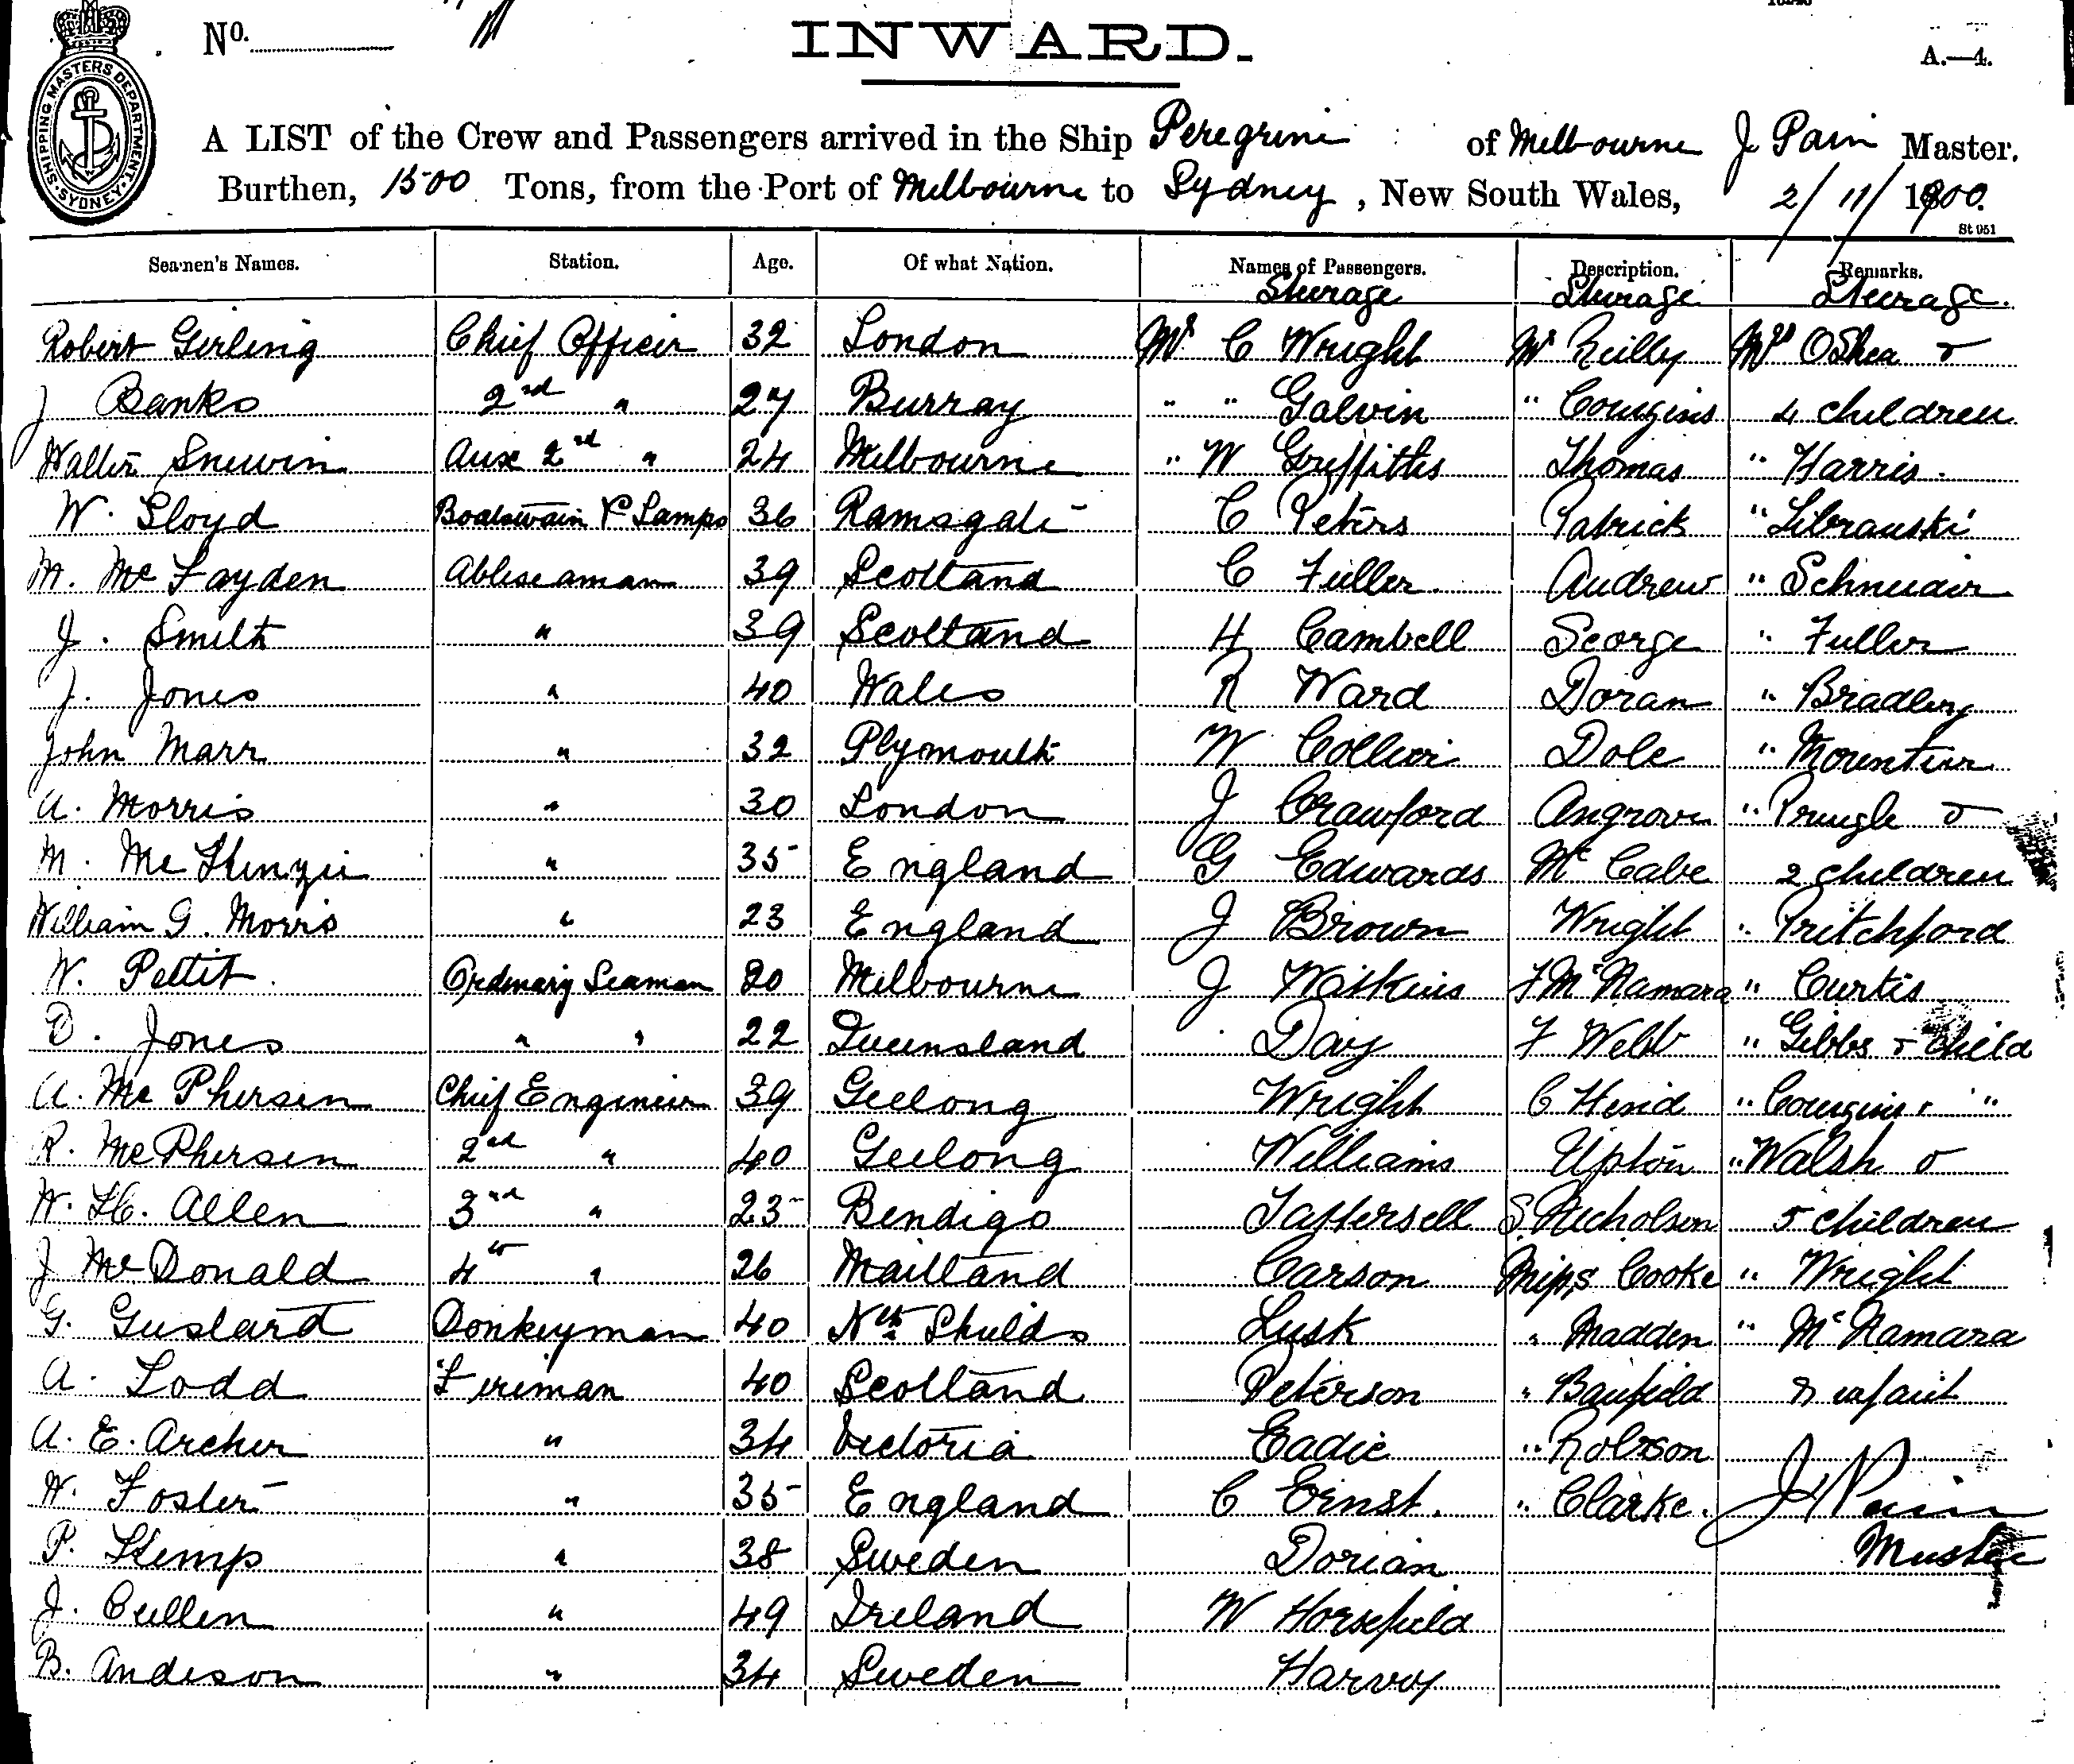 No.
INWARD.
A.—4.
SHIPPING MASTERS DEPARTMENT. SYDNEY.
A LIST of the Crew and Passengers arrived in the Ship Peregrine of Melbourne J Pain Master.
Burthen, 1500 Tons, from the Port of Melbourne to Sydney, New South Wales, 2/11/1900.
St 951
Seamen's Names. Station. Age. Of what Nation. Names of Passengers. Description. Remarks.
Steerage Steerage Steerage.
Robert Girling Chief Officer 32 London Mr C Wright Mr Reilly Mrs OShea &
J Banks 2nd " 27 Burray " " Galvin " Cousins 4 children
Walter Snewin Aux 2nd " 24 Melbourne " W Griffiths Thomas " Harris.
W. Lloyd Boatswain & Lamps 36 Ramsgate C Peters Patrick " Librauski
M. McFayden Ableseaman 39 Scotland C Fuller Andrew " Schneider
J. Smith " 39 Scotland H Cambell George " Fuller
J. Jones " 40 Wales R Ward Doran " Bradley
John Marr " 32 Plymouth W Collier Dole " Mountier
A. Morris " 30 London J Crawford Angrove " Pringle &
M. McKenzie " 35 England G Edwards McCabe 2 children
William G. Morris " 23 England J Brown Wright " Pritchford
W. Pettit. Ordinary Seaman 20 Melbourne J Watkins F McNamara " Curtis
D. Jones " " 22 Queensland Day F Webb " Gibbs & child
A. McPhersen Chief Engineer 39 Geelong Wright C Hind " Cousins " "
R. McPhersen 2nd " 40 Geelong Williams Upton " Walsh &
W. H. Allen 3rd " 23 Bendigo Tattersell S. Nicholson 5 children
J McDonald 4th " 26 Maitland Carson Miss Cooke " Wright
G. Gustard Donkeyman 40 Nth Shields Lusk " Madden " McNamara
A. Todd Fireman 40 Scotland Peterson " Banfield & infant
A. E. Archer " 34 Victoria Eadie " Robson
W. Foster " 35 England C Ernst. " Clarke. J Pain
P. Kemp " 38 Sweden Dorian Master
J. Cullen " 49 Ireland W Horsefield
B. Andeson " 34 Sweden Harvey